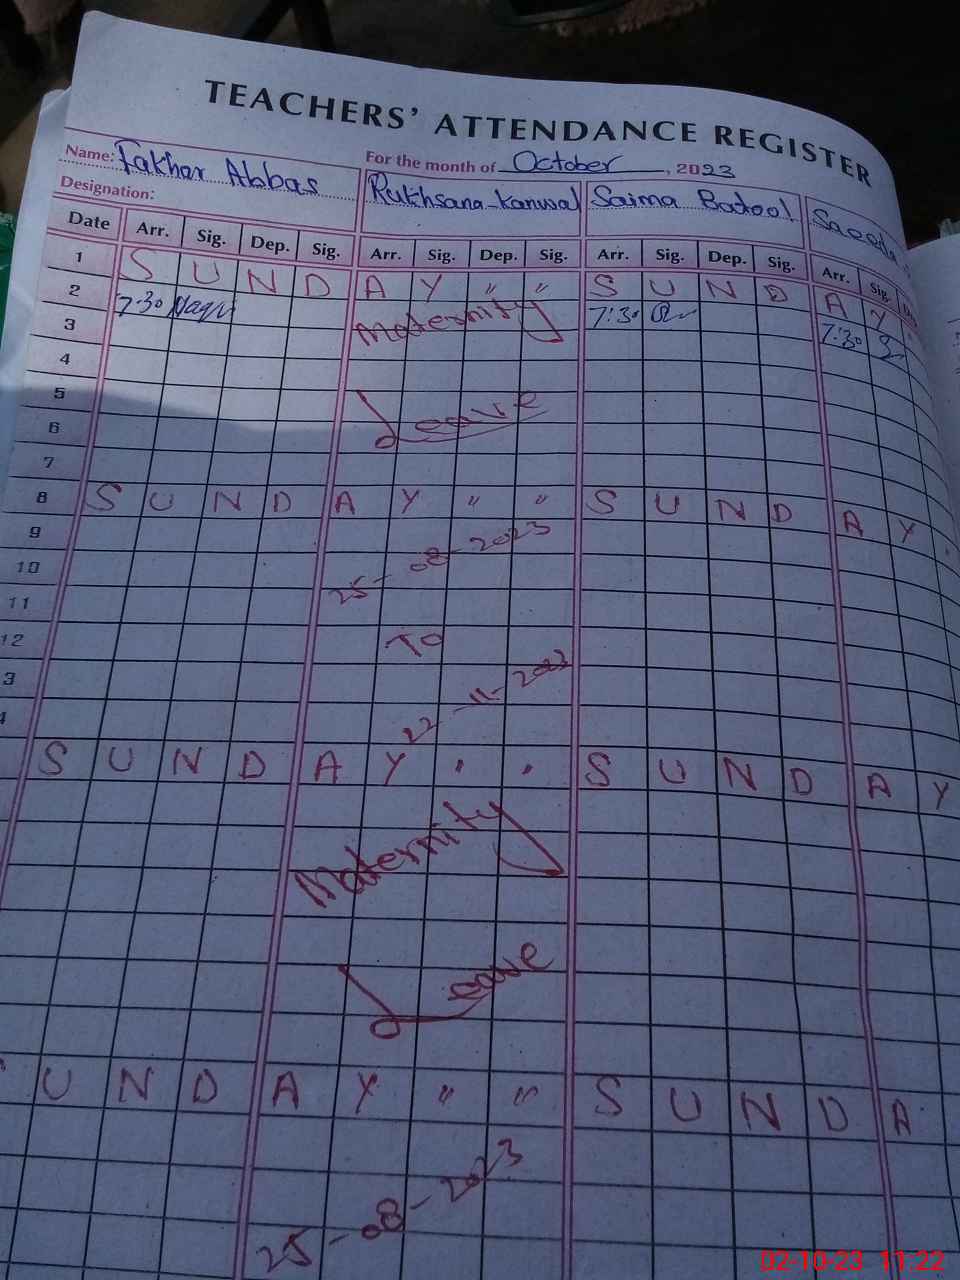 TEACHERS' ATTENDANCE REGISTER
Name: Fakhar Abbas For the month of October, 2023
Designation: Rukhsana Kanwal Saima Batool Saeeda
Date Arr. Sig. Dep. Sig. Arr. Sig. Dep. Sig. Arr. Sig. Dep. Sig. Arr. Sig.
1 S U N D A Y " " S U N D A Y
2 7:30 Naqvi Maternity 7:30 7:30
3
4
5 Leave
6
7
8 S U N D A Y " " S U N D A Y
9
10 25-08-2023
11
12 To
3
4 22-11-2023
S U N D A Y " " S U N D A Y
Maternity
Leave
U N D A Y " " S U N D A
25-08-2023
02-10-23 11:22